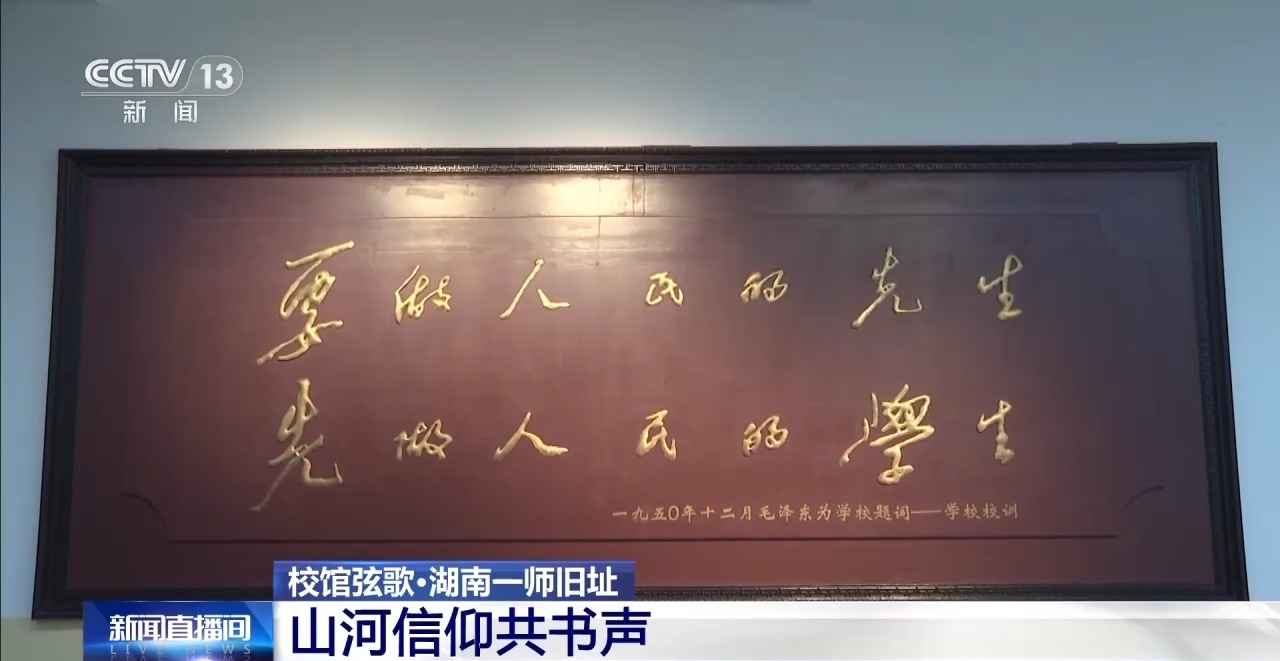 CCTV 13
新闻
要做人民的先生
先做人民的學生
一九五〇年十二月毛泽东为学校题词——学校校训
校馆弦歌·湖南一师旧址
新闻直播间
LIVE NEWS
山河信仰共书声